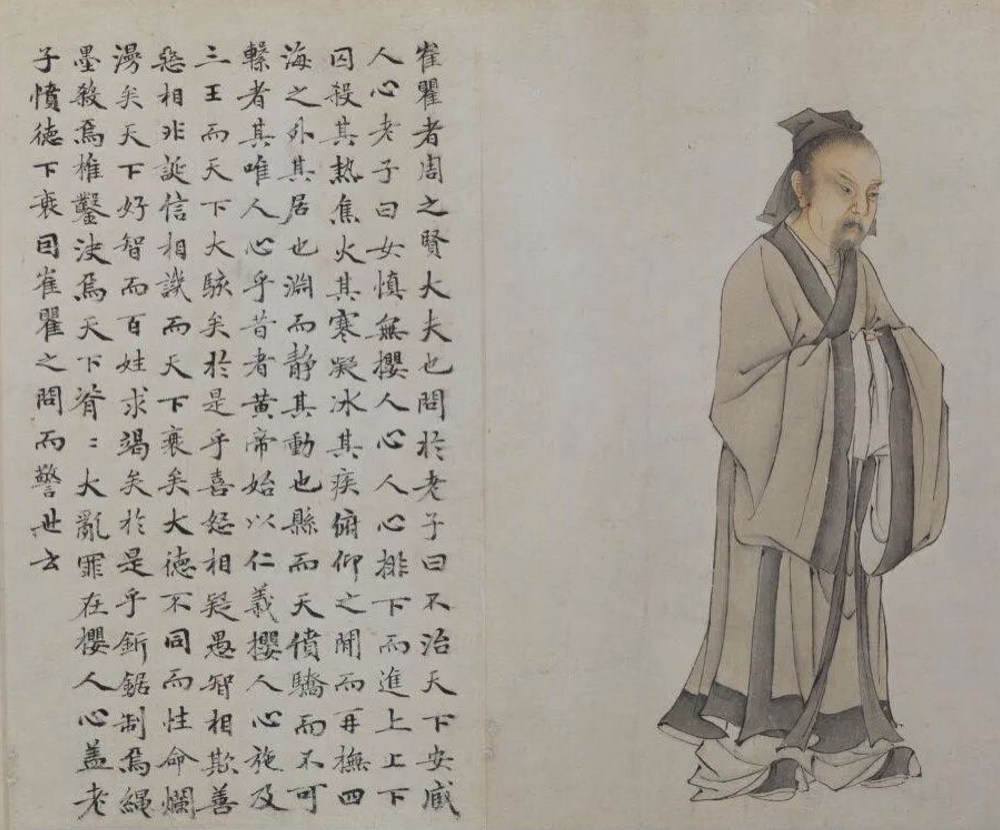 崔瞿者周之賢大夫也問於老子曰不治天下安臧
人心老子曰女慎無攖人心人心排下而進上上下
囚殺其熱焦火其寒凝冰其疾俯仰之間而再撫四
海之外其居也淵而靜其動也縣而天僨驕而不可
繫者其唯人心乎昔者黃帝始以仁義攖人心施及
三王而天下大駭矣於是乎喜怒相疑愚智相欺善
惡相非誕信相譏而天下衰矣大徳不同而性命爛
漫矣天下好智而百姓求竭矣於是乎釿鋸制焉繩
墨殺焉椎鑿決焉天下脊〻大亂罪在攖人心盖老
子憤徳下衰因崔瞿之問而警世云